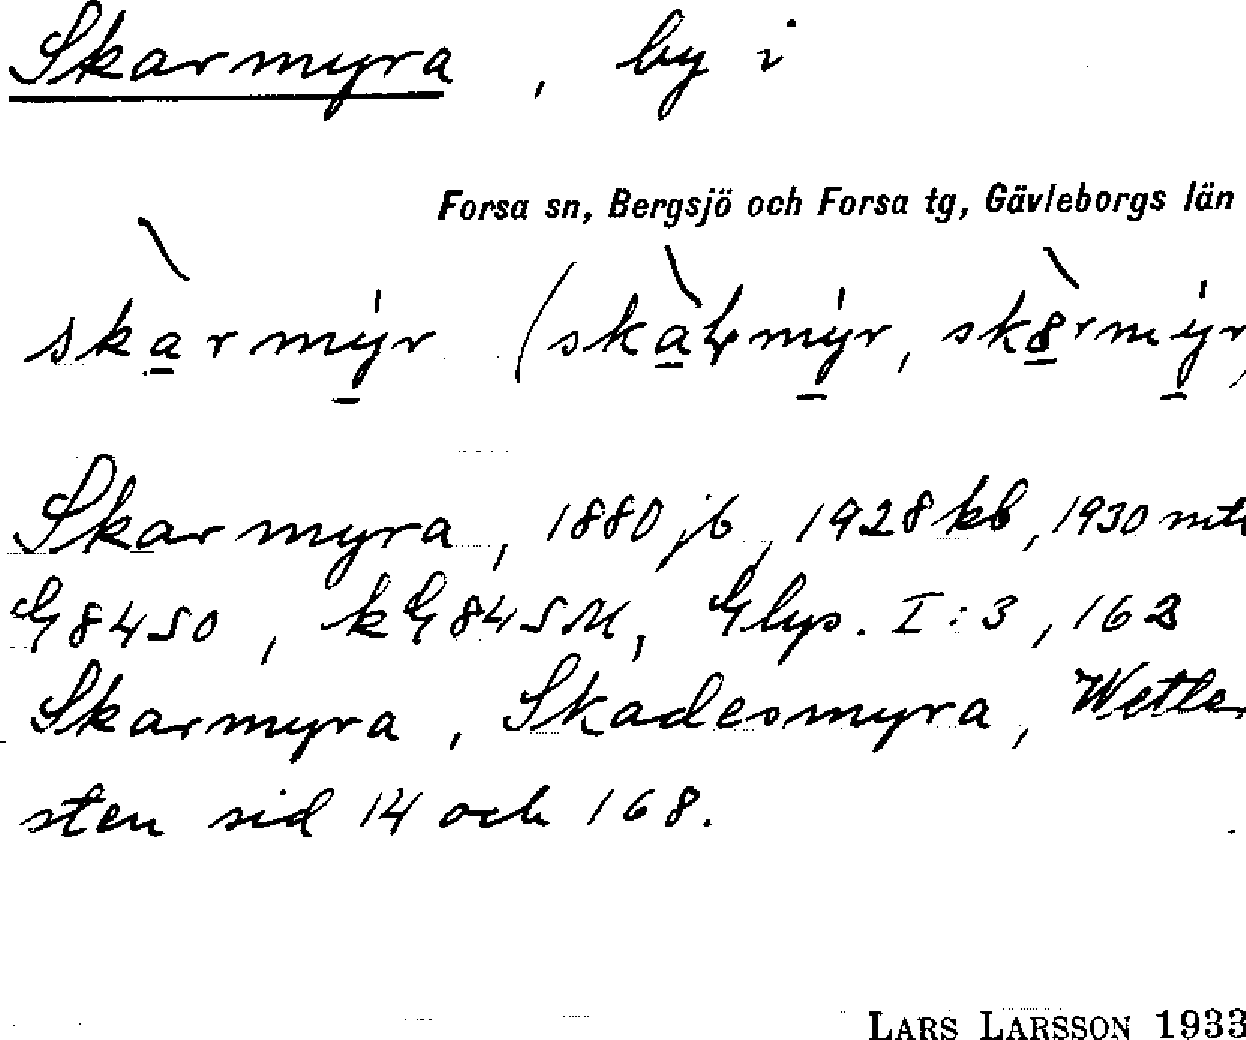 Skarmyra, by i
Forsa sn, Bergsjö och Forsa tg, Gävleborgs län
skàrmýr (skàɽmýr, skàrmýr
Skarmyra, 1880 jb, 1928 kb, 1930 mtl
G 84 SO, k G 84 SM, Glys. I:3, 162
Skarmyra, Skadesmyra, Wetter
sten sid 14 och 168.
LARS LARSSON 1933